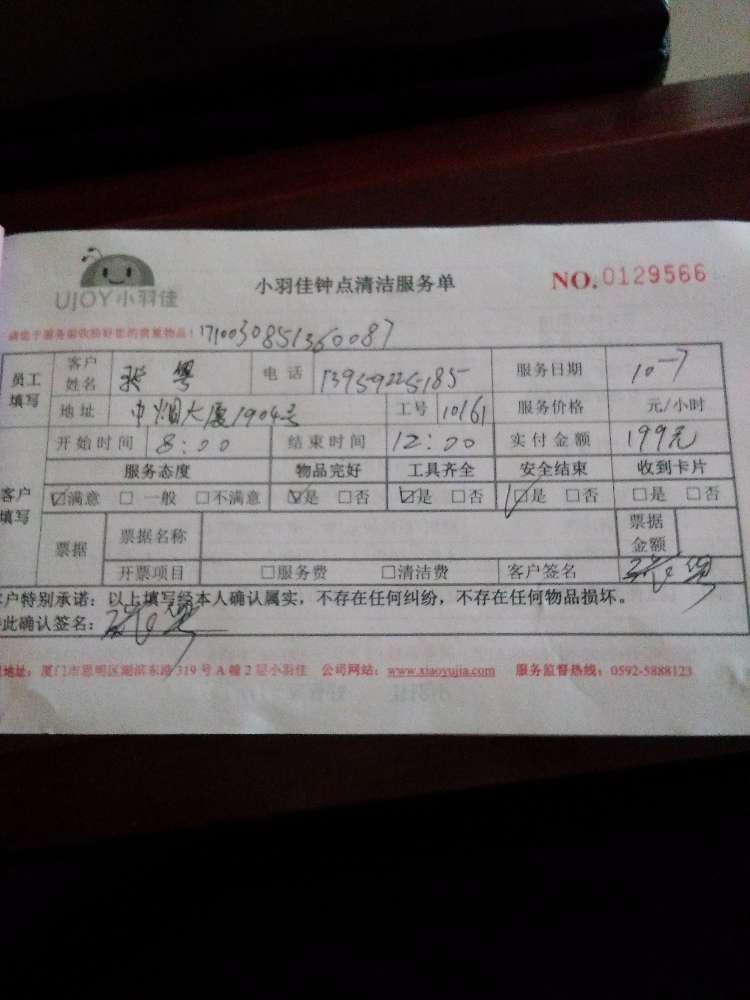 UJOY小羽佳
小羽佳钟点清洁服务单
NO.0129566
请您于服务前收拾好您的贵重物品! 1710030851360087
员工填写 客户姓名 张粤 电话 13959225185 服务日期 10-7
地址 中烟大厦1904号 工号 10161 服务价格 元/小时
开始时间 8:00 结束时间 12:00 实付金额 199元
客户填写 服务态度 物品完好 工具齐全 安全结束 收到卡片
☑满意 □一般 □不满意 ☑是 □否 ☑是 □否 ☑是 □否 □是 □否
票据 票据名称 票据金额
开票项目 □服务费 □清洁费 客户签名 张粤
客户特别承诺:以上填写经本人确认属实,不存在任何纠纷,不存在任何物品损坏。
此确认签名:张粤
地址:厦门市思明区湖滨东路319号A幢2层小羽佳 公司网站:www.xiaoyujia.com 服务监督热线:0592-5888123